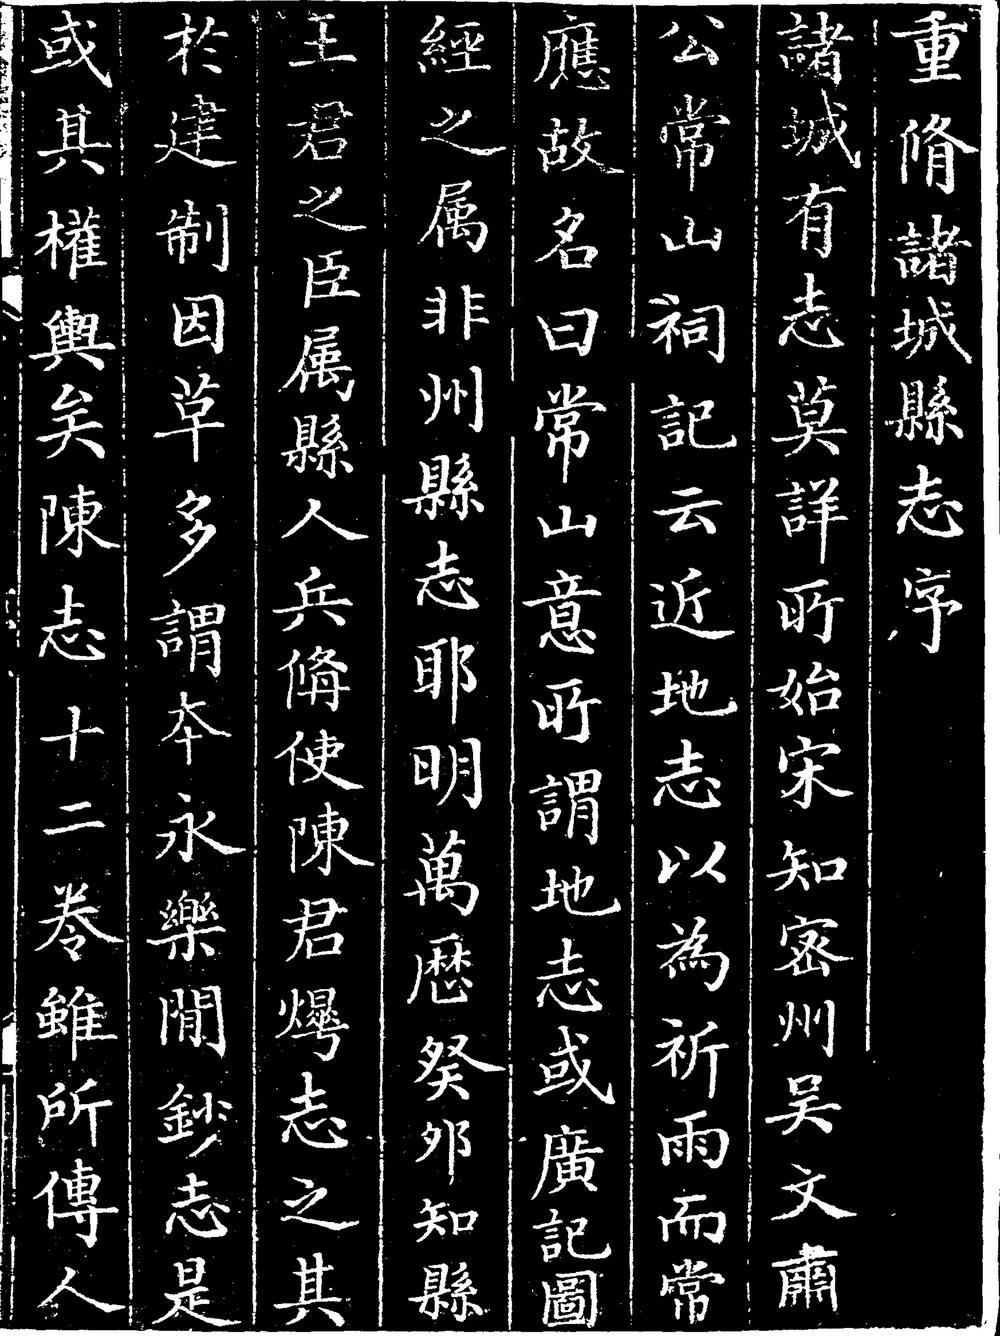 重脩諸城縣志序
諸城有志莫詳所始宋知宻州吴文肅
公常山祠記云近地志以為祈雨而常
應故名曰常山意所謂地志或廣記圖
經之属非州縣志耶明萬厯癸夘知縣
王君之臣属縣人兵備使陳君燁志之其
於建制因草多謂本永樂間鈔志是
或其權輿矣陳志十二卷雖所傳人